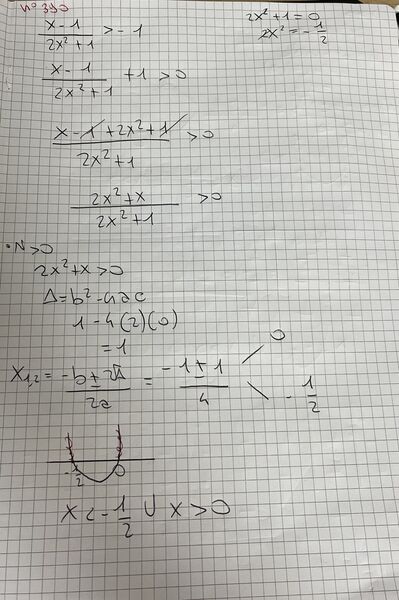 n° 390
x-1/2x²+1 > -1
2x²+1=0
2x²=-1/2
x-1/2x²+1 +1>0
x-1+2x²+1/2x²+1 >0
2x²+x/2x²+1 >0
• N>0
2x²+x>0
Δ=b²-4ac
1-4(2)(0)
=1
x1,2 = -b±2√Δ/2a = -1±1/4
0
-1/2
-1/2 0
x<-1/2 ∪ x>0